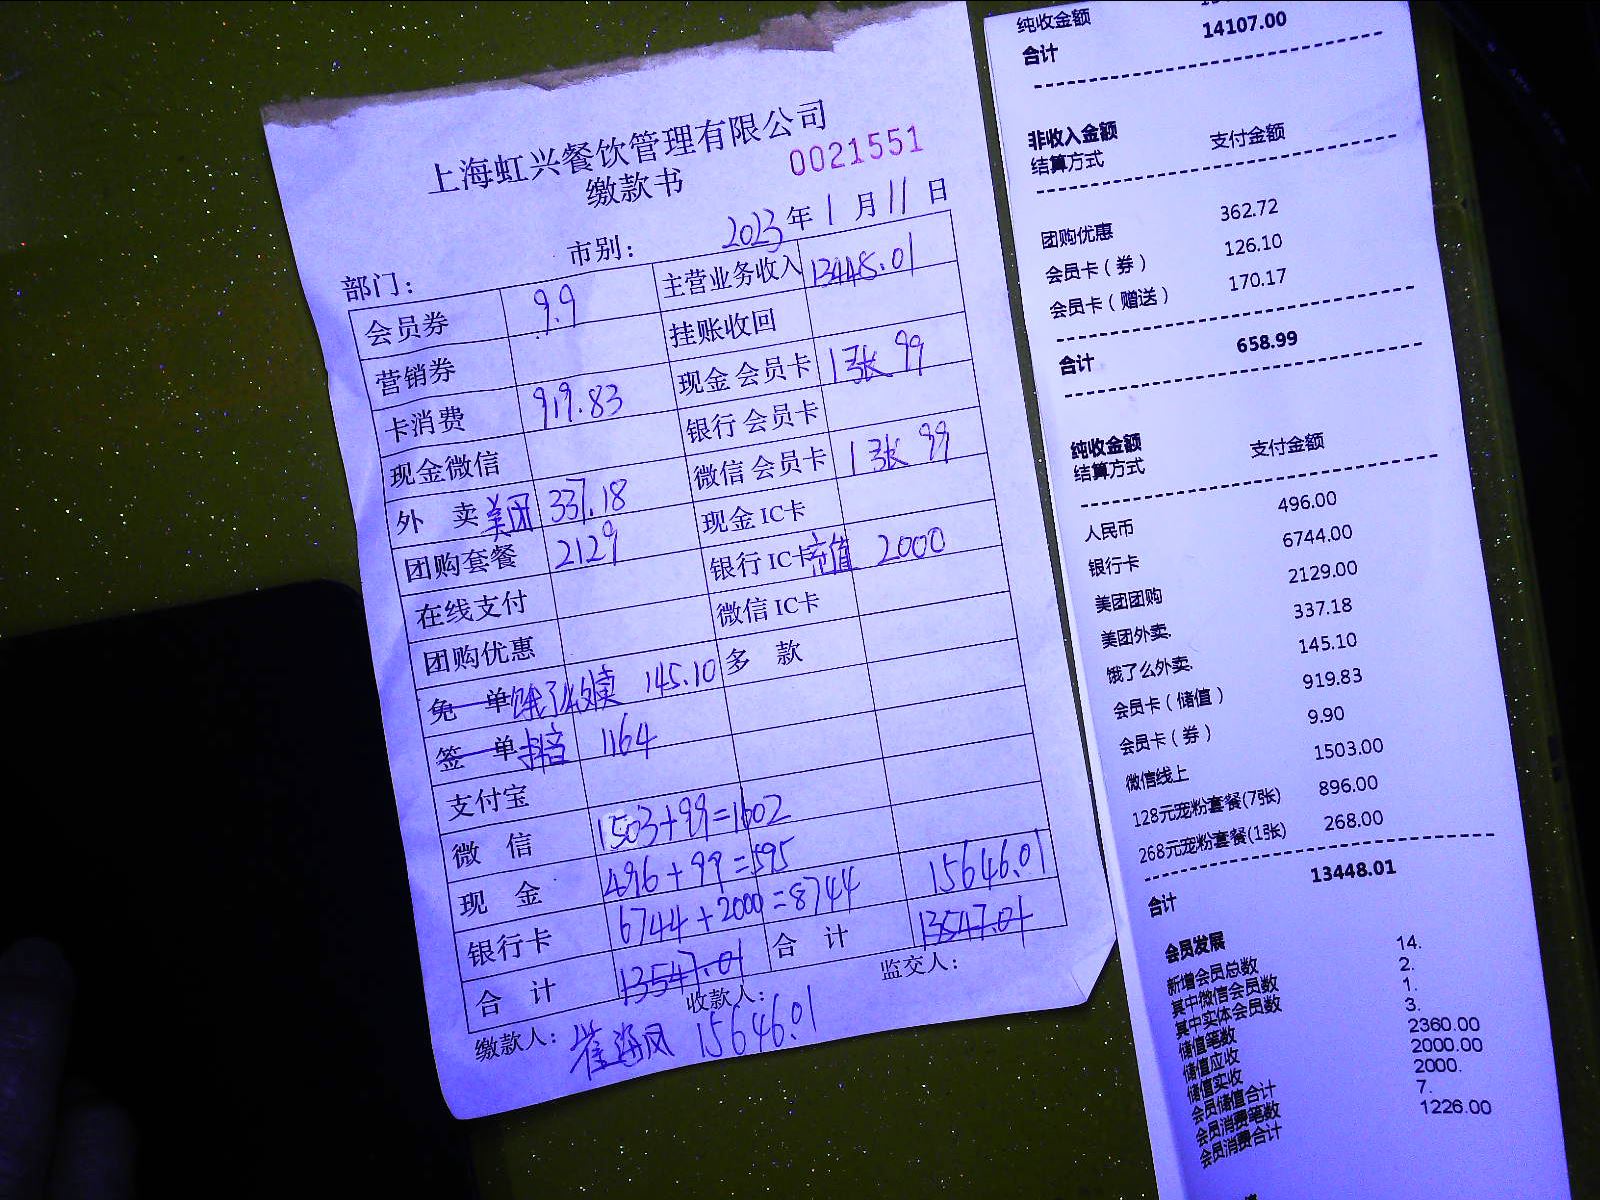 上海虹兴餐饮管理有限公司
缴款书
0021551
部门： 市别： 2023年1月11日
会员券 9.9 主营业务收入 13448.01
营销券 挂账收回
卡消费 919.83 现金 会员卡 1张 99
现金微信 银行 会员卡
外 卖 美团 337.18 微信 会员卡 1张 99
团购套餐 2129 现金 IC卡
在线支付 银行 IC卡 充值 2000
团购优惠 微信 IC卡
免 单 饿了么外卖 145.10 多 款
签 单 抖音 1164
支付宝
微 信 1503+99=1602
现 金 496+99=595
银行卡 6744+2000=8744 15646.01
合 计 13547.01 合 计 13547.01
缴款人： 收款人： 监交人：
崔海凤 15646.01
纯收金额
合计 14107.00
非收入金额
结算方式 支付金额
团购优惠 362.72
会员卡（券） 126.10
会员卡（赠送） 170.17
合计 658.99
纯收金额
结算方式 支付金额
人民币 496.00
银行卡 6744.00
美团团购 2129.00
美团外卖. 337.18
饿了么外卖. 145.10
会员卡（储值） 919.83
会员卡（券） 9.90
微信线上 1503.00
128元宠粉套餐(7张) 896.00
268元宠粉套餐(1张) 268.00
合计 13448.01
会员发展
新增会员总数 14.
其中微信会员数 2.
其中实体会员数 1.
储值笔数 3.
储值应收 2360.00
储值实收 2000.00
会员储值合计 2000.
会员消费笔数 7.
会员消费合计 1226.00